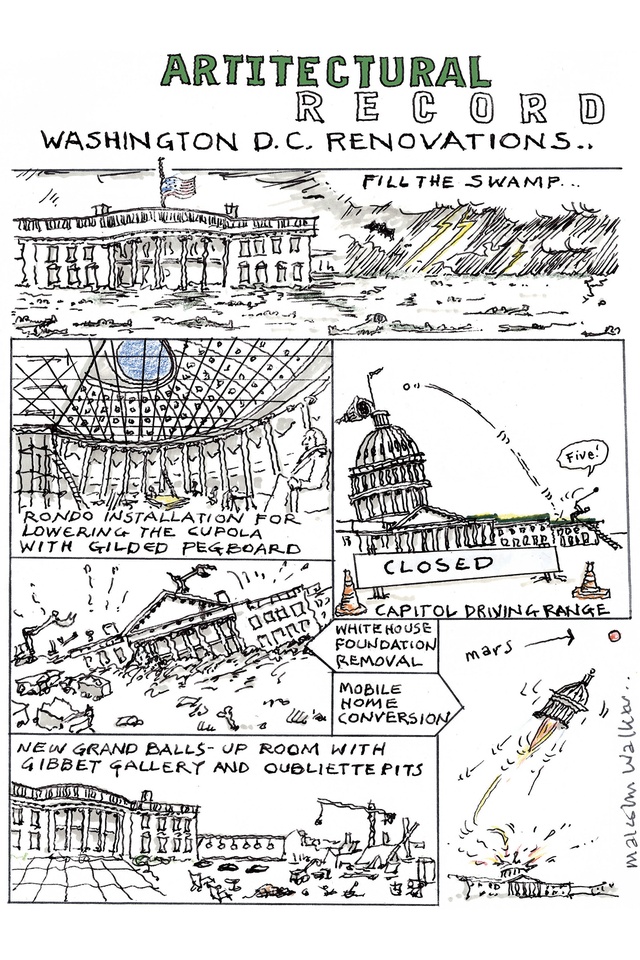 ARTITECTURAL
RECORD
WASHINGTON D.C. RENOVATIONS..
FILL THE SWAMP...
RONDO INSTALLATION FOR
LOWERING THE CUPOLA
WITH GILDED PEGBOARD
Five!
CLOSED
CAPITOL DRIVING RANGE
WHITEHOUSE
FOUNDATION
REMOVAL
mars
MOBILE
HOME
CONVERSION
NEW GRAND BALLS-UP ROOM WITH
GIBBET GALLERY AND OUBLIETTE PITS
malcolm Walker..